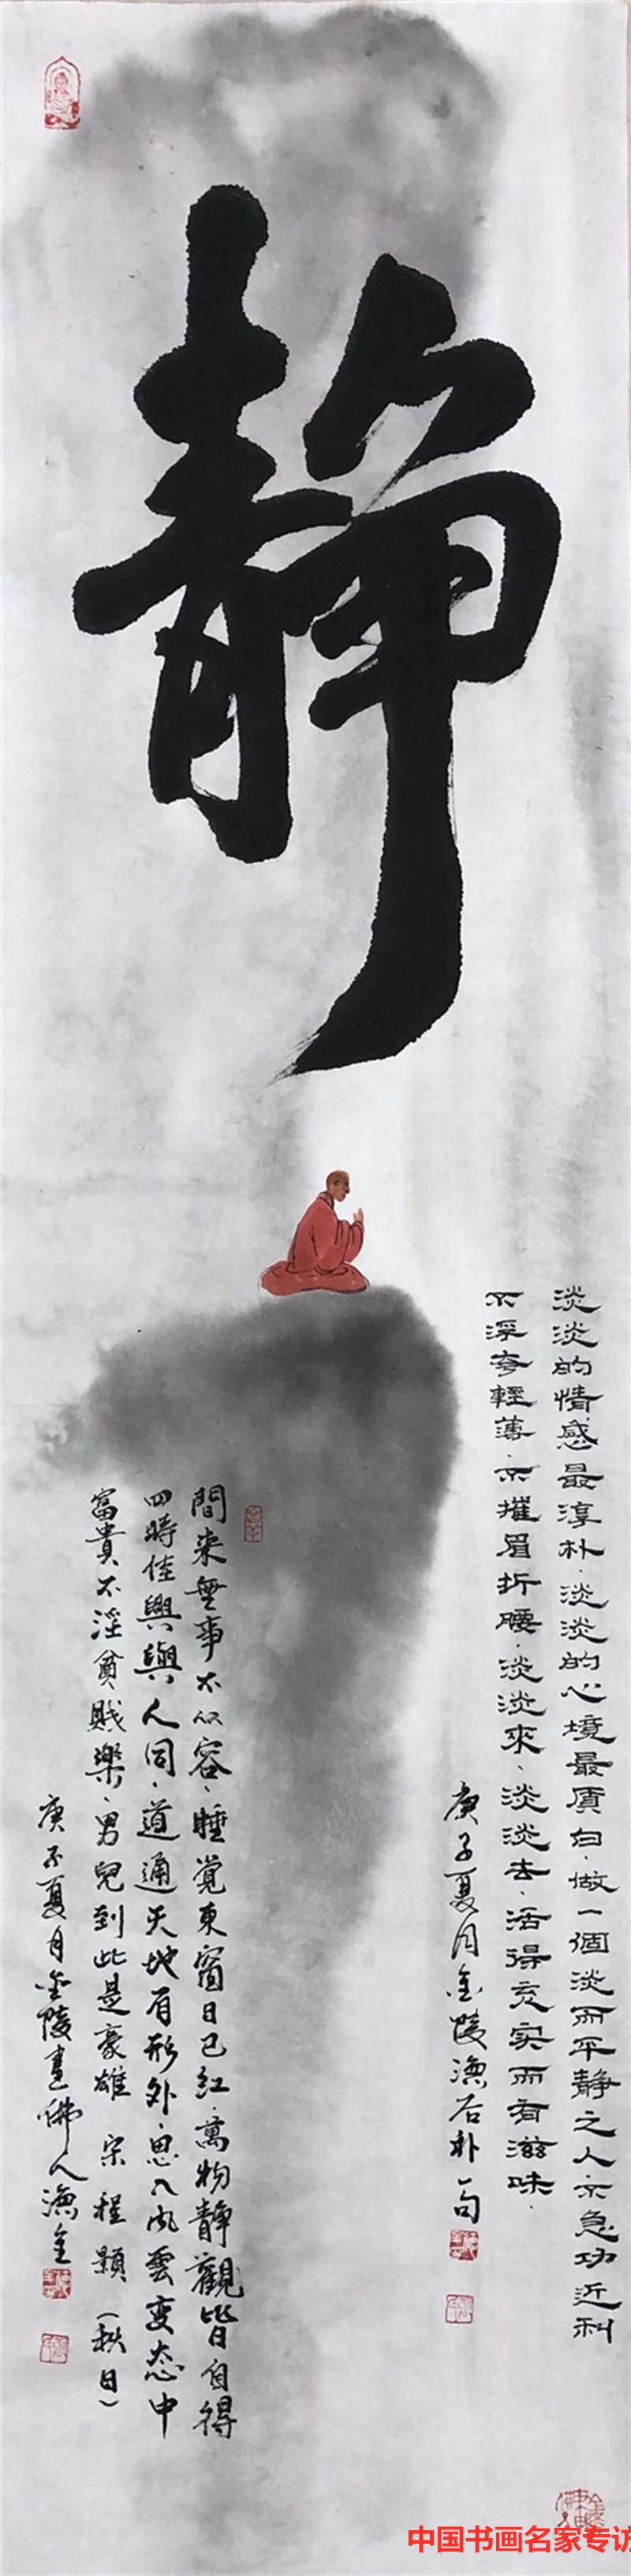 静
淡淡的情感最淳朴.淡淡的心境最质白.做一個淡而平静之人.不急功近利
不浮夸輕薄.不摧眉折腰.淡淡來、淡淡去.活得充实而有滋味.
庚子夏月金陵渔石补一句
間来無事不從容、睡覺東窗日已紅.萬物静觀皆自得
四時佳興與人同、道通天地有形外.思入風雲变态中
富貴不淫貧贱樂.男兒到此是豪雄 宋 程顥 (秋日)
庚子夏月金陵畫佛人渔金
中国书画名家专访